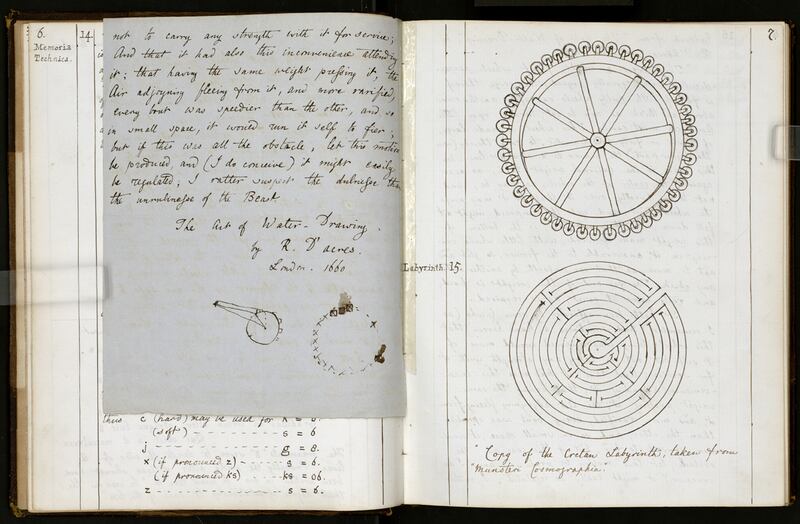 6.
14.
Memoria
Technica.
not to carry any strength with it for service;
And that it had also this inconvenience attending
it; that having the same weight pressing it, the
Air adjoyning fleeing from it, and more rarified,
every brut was speedier than the other, and so
in small space, it would run it self to fier;
but if this was all the obstacle, let this motion
be produced, and (I do conceive) it might easily
be regulated; I rather suspect the dulnesse than
the unrulinesse of the Beast
The Art of Water-Drawing.
by R. D'acres.
London. 1660
thus c (hard) may be used for k = 6.
(soft) - - - - - - - - - s = 6
j - - - - - - - - - g = 8.
x (if pronounced z) - - - - s = 6.
(if pronounced ks) - - - - ks = 06.
z - - - - - - - - - s = 6.
7.
Labyrinth. 15.
"Copy of the Cretan Labyrinth, taken from
"Munsteri Cosmographia."